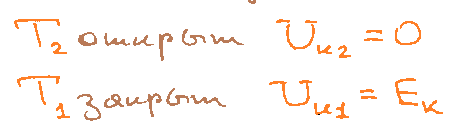 T₂ открыт Uк2 = 0
T₁ закрыт Uк1 = Eк